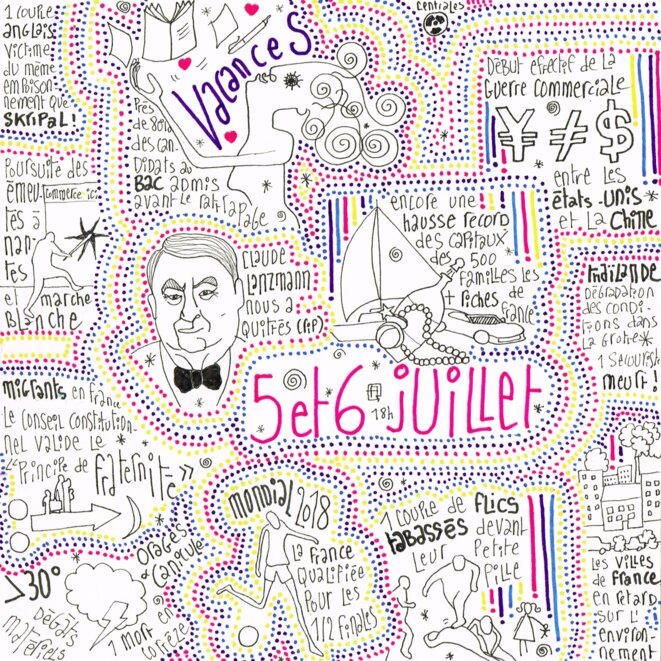 1 couple
anglais
victime
du même
empoison-
nement que
SKRIPAL!
Vacances
Près
de 80%
des can-
didats au
BAC admis
avant le rattrapage
centrales
Début effectif de la
Guerre commerciale
¥ ≠ $
entre les
états-unis
et la Chine
Poursuite des
émeu-
tes à
nan-
tes
et marche
Blanche
commerce ici
Claude
Lanzmann
nous a
quittés (rip)
encore une
hausse record
des capitaux
des 500
familles les
+ riches de
France
Thaïlande
Dégradation
des condi-
tions dans
la Grotte
1 secouriste
meurt!
5 et 6 juillet
18h
migrants en france
Le conseil constitution-
nel valide le
"Principe de fraternité"
Mondial 2018
la France
qualifiée
pour les
1/2 finales
1 couple de flics
tabassés
devant
leur petite
fille
Les villes
de France
en retard
sur l'
environ-
nement
>30°
orages
& canicule
Dégâts
matériels
1 mort en
corrèze